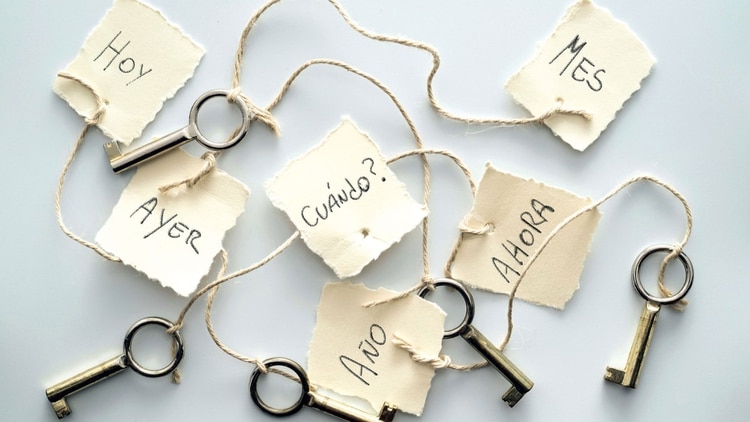 HOY
MES
AYER
CUÁNDO?
AHORA
AÑO